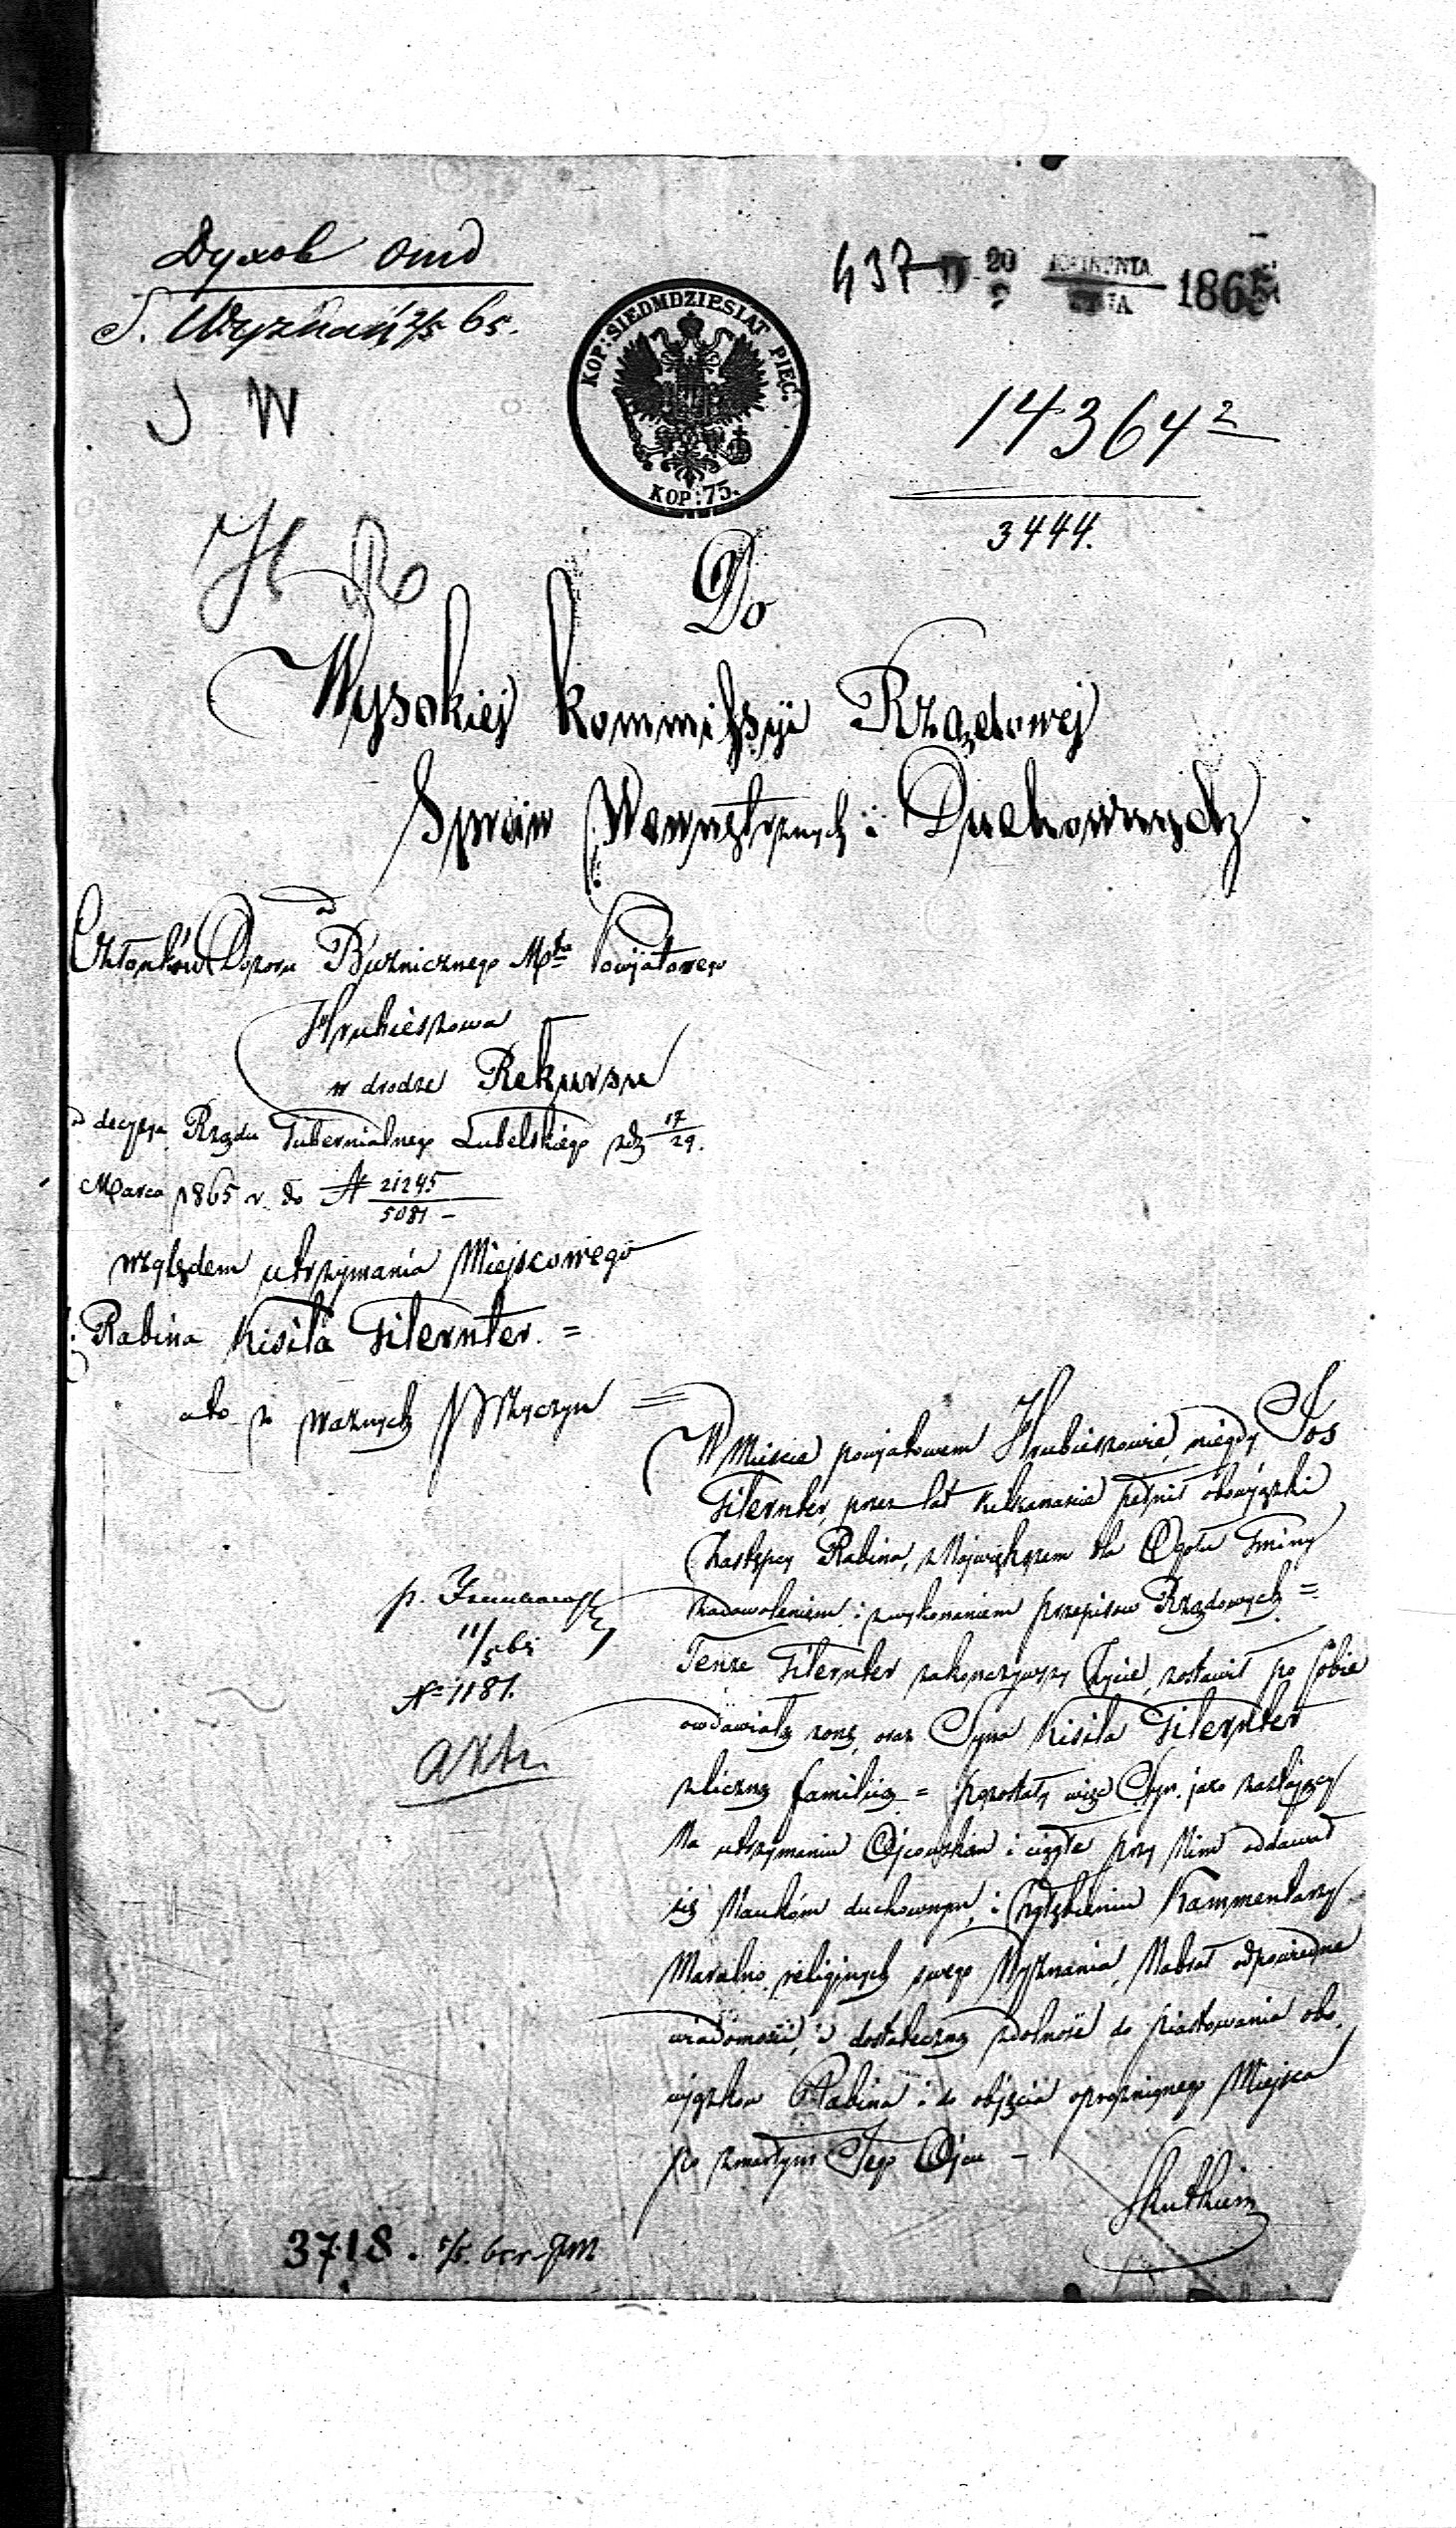 Духов Отд
S. Wyznań 2/5 65.
437 D. 20 KWIETNIA 1865
KOP: SIEDMDZIESIĄT PIĘĆ.
KOP: 75.
J W
14364 2
3444.
H R
Do
Wysokiej Kommissyi Rządowej
Spraw Wewnętrznych i Duchownych
od
Członków Dozoru Bużnicznego Mta Powiatowego
Hrubieszowa
w drodze Rekursu
decyzyą Rządu Gubernialnego Lubelskiego zdz 17/29.
Marca 1865 r. do N 21245/5081 –
względem utrzymania Miejscowego
Rabina Kisila Gilernter. =
a to z ważnych Przyczyn =
W Mieście powiatowem Hrubieszowie, niegdy Jos
Gilernter, przez lat kilkanaście pełnił obowiązki
Zastępcy Rabina, z Największem dla Ogółu Gminy
zadowoleniem i z wykonaniem przepisów Rządowych =
Tenże Gilernter zakończywszy Życie, zostawił po sobie
owdowiałą żonę, oraz Syna Kisila Gilernter
z liczną familią = pozostały więc Syn. jako zostający
Na utrzymaniu Ojcowskim i ciągle przy Nim oddawał
się Naukóm duchownym, i Zgłębieniu Kommentarzy
Moralno religijnych swego Wyznania, Nabrał odpowiedne
wiadomości, i dostateczną zdolność do piastowania obo
wiązków Rabina i do objęcia opróżnionego Miejsca
po zmarłym Jego Ojcu –
Skutkiem
11/5 65
N 1181.
akta
3718. 5/5. 65 r.